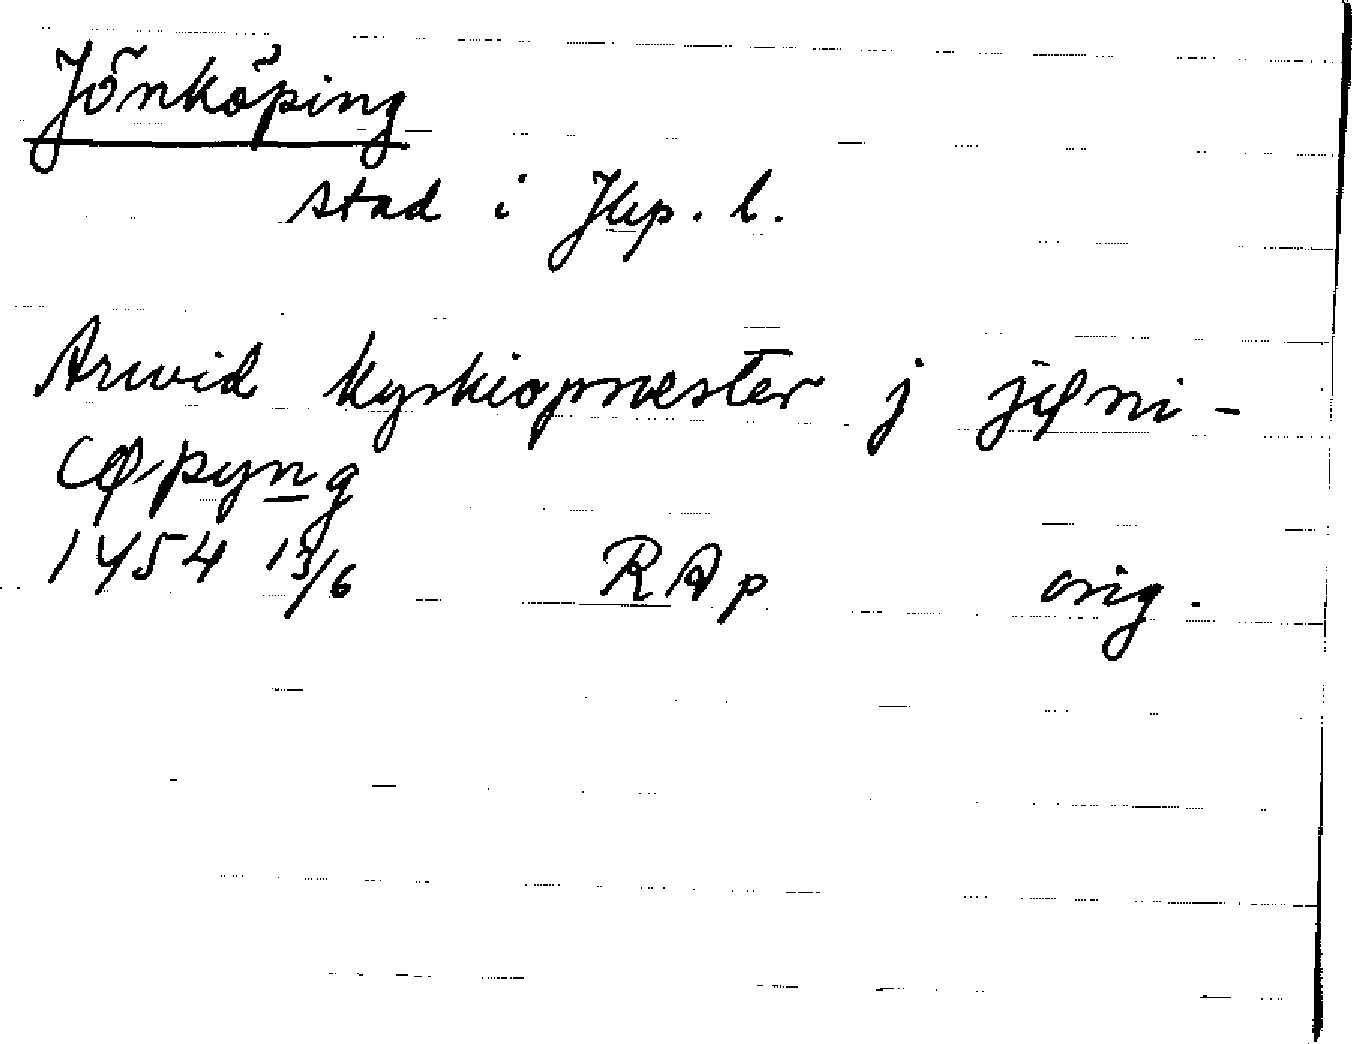 Jönköping
stad i Jkp. l.
Arwid kyrkiopræster j jøni-
cøpyng
1454 13/6 RAp orig.